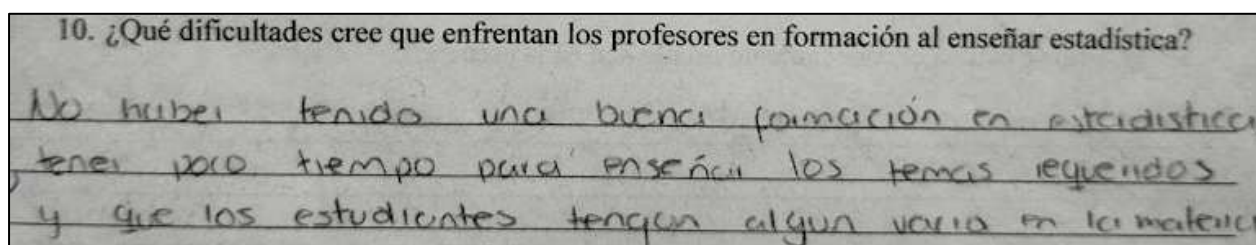 10. ¿Qué dificultades cree que enfrentan los profesores en formación al enseñar estadística?
No haber tenido una buena formación en estadística
, tener poco tiempo para enseñar los temas requeridos
y que los estudiantes tengan algun vacio en la materia